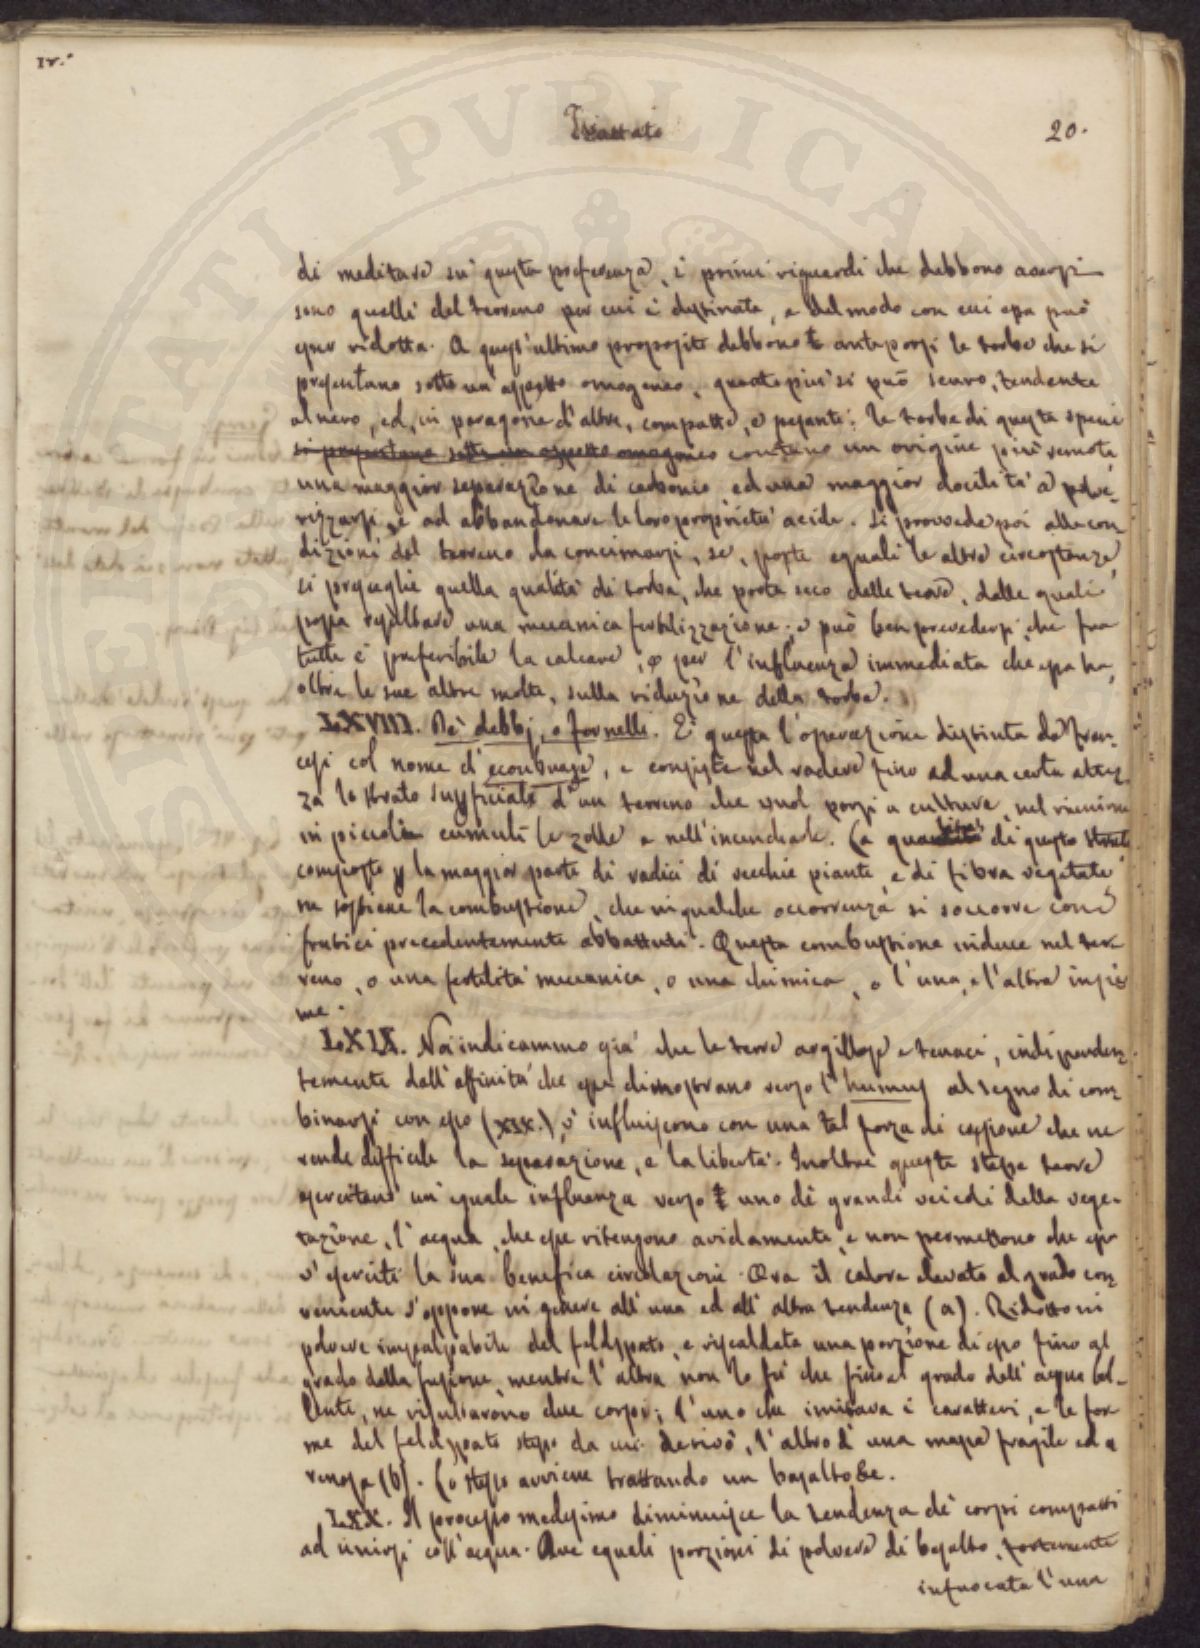 IV.°
Trattato
20.
di meditare su' questa preferenza, i primi riguardi che debbono aversi
sono quelli del terreno per cui è destinata, e del modo con cui essa può
esser ridotta. A quest'ultimo proposito debbono anteporsi le torbe che si
presentano sotto un'aspetto omogeneo, quanto più si può scuro, tendente
al nero, ed, in paragone d'altre, compatte, e pesanti: le torbe di questa specie
si presentano sotto un aspetto omogeneo contano un origine più remota,
una maggior separazione di carbonio, ed una maggior docilità a polve-
rizzarsi, e ad abbandonare le loro proprietà acide. Si provvede poi alla con-
dizioni del terreno da concimarsi, se, poste eguali le altre circostanze,
si presceglie quella qualità di torba, che porta seco delle terre, dalle quali
possa resultare una meccanica fertilizzazione; e può ben prevedersi che fra
tutte è preferibile la calcare, per l'influenza immediata che essa ha,
oltre le sue altre molte, sulla riduzione della torba.
LXVIII. De' debbj, o fornelli. E' questa l'operazione distinta da' Fran-
cesi col nome d'ecoubuage, e consiste nel radere fino ad una certa altez-
za lo strato superficiale d'un terreno che vuol porsi a cultura, nel riunire
in piccoli cumuli le zolle e nell'incendiarle. La di questo
composto p la maggior parte di radici di vecchie piante, e di fibra vegetale,
ne sostiene la combustione, che in qualche occorrenza si soccorre con
frutici precedentemente abbattuti. Questa combustione induce nel ter-
reno, o una fertilità meccanica, o una chimica, o l'una, e l'altra insie-
me.
LXIX. Noi indicammo già che le terre argillose e tenaci, indipenden-
temente dall'affinità che esse dimostrano verso l'humus al segno di com-
binarsi con esso (XIX.), v'influiscono con una tal forza di coesione che ne
rende difficile la separazione, e la libertà. Inoltre queste stesse terre
esercitano un'eguale influenza verso uno di grandi veicoli della vege-
tazione, l'acqua, che esse ritengono avidamente, e non permettono che essa
v'eserciti la sua benefica circolazione. Ora il calore elevato al grado con-
veniente s'oppone in genere all'una ed all'altra tendenza (a). Ridotto in
polvere impalpabile del feldspato, e riscaldata una porzione di esso fino al
grado della fusione, mentre l'altra non lo fu che fino al grado dell'acqua bol-
lente, ne risultarono due corpi; l'uno che imitava i caratteri, e le for-
me del feldspato stesso da cui derivò, l'altro d'una massa fragile ed a-
renosa (b). Lo stesso avviene trattando un basalto &c.
LXX. Il processo medesimo diminuisce la tendenza de' corpi compatti
ad unirsi coll'acqua. Due eguali porzioni di polvere di basalto, fortemente
infuocata l'una